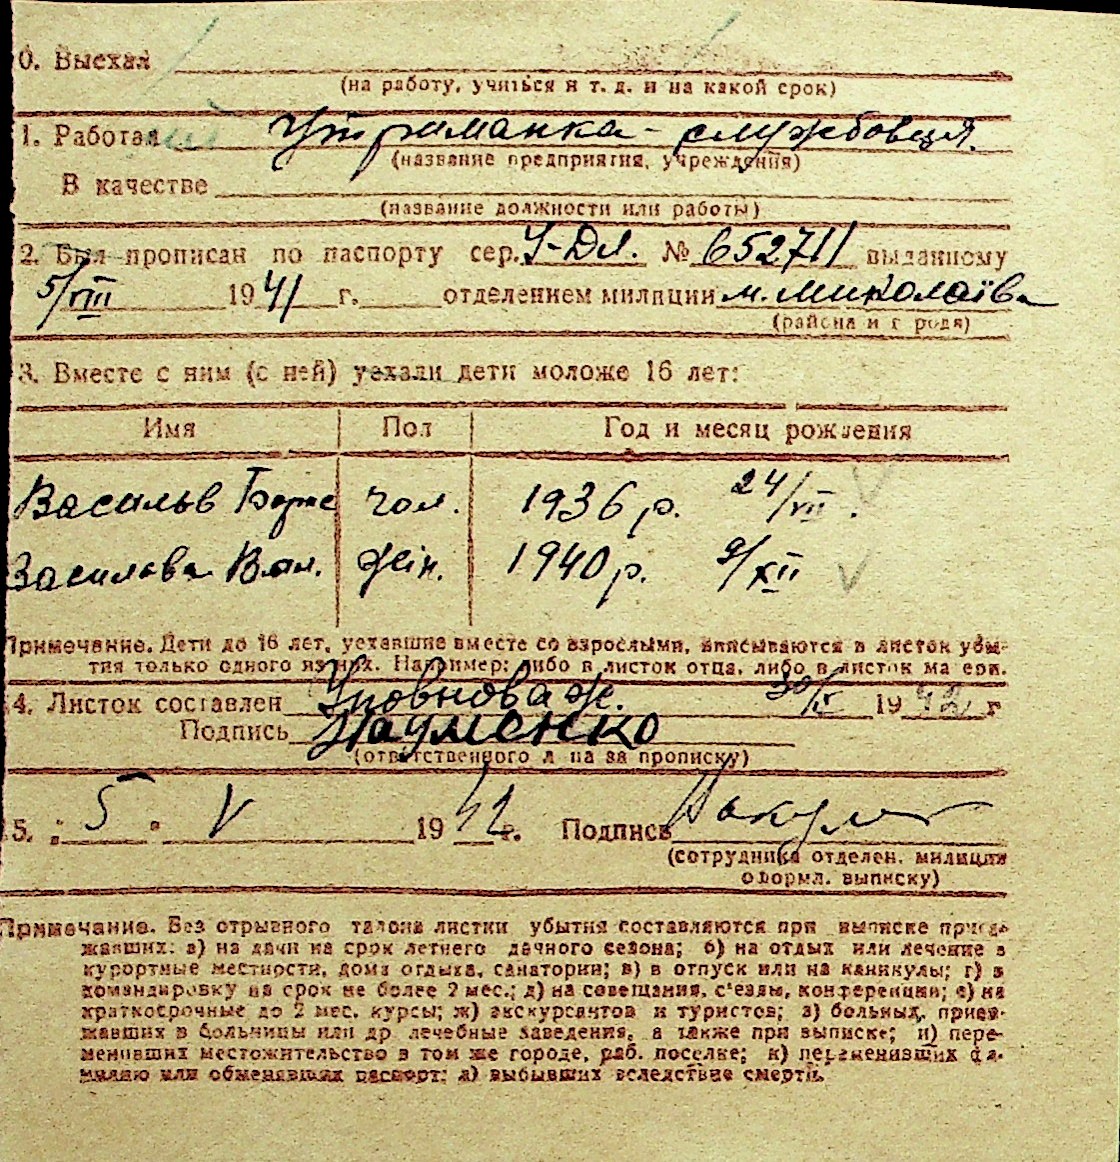 0. Выехал
(на работу, учиться и т. д. и на какой срок)
1. Работал Утриманка - службовця.
(название предприятия, учреждения)
В качестве
(название должности или работы)
2. Был прописан по паспорту сер. У-Дл. № 652711 выданному
5/VIII 1941 г. отделением милиции м. Миколаїва
(района и г рода)
3. Вместе с ним (с ней) уехали дети моложе 16 лет:
Имя Пол Год и месяц рождения
Васильв Борис чол. 1936 р. 24/VII.
Василева Вал. жін. 1940 р. 9/XII
Примечание. Дети до 16 лет, уехавшие вместе со взрослыми, вписываются в листок убы-
тия только одного из них. Например: либо в листок отца, либо в листок ма ери.
4. Листок составлен Уповноваж. 30/ 1942 г
Подпись Науменко
(ответственного л ца за прописку)
5. "5" V 1942 г. Подпись
(сотрудника отделен. милиции
оформл. выписку)
Примечание. Без отрывного талона листки убытия составляются при выписке приез-
жавших: а) на дачи на срок летнего дачного сезона; б) на отдых или лечение в
курортные местности, дома отдыха, санатории; в) в отпуск или на каникулы; г) в
командировку на срок не более 2 мес.; д) на совещания, с'езды, конференции; е) на
краткосрочные до 2 мес. курсы; ж) экскурсантов и туристов; з) больных, приез-
жавших в больницы или др лечебные заведения, а также при выписке; и) пере-
менивших местожительство в том же городе, раб. поселке; к) переменивших фа-
милию или обменявших паспорт; л) выбывших вследствие смерти.